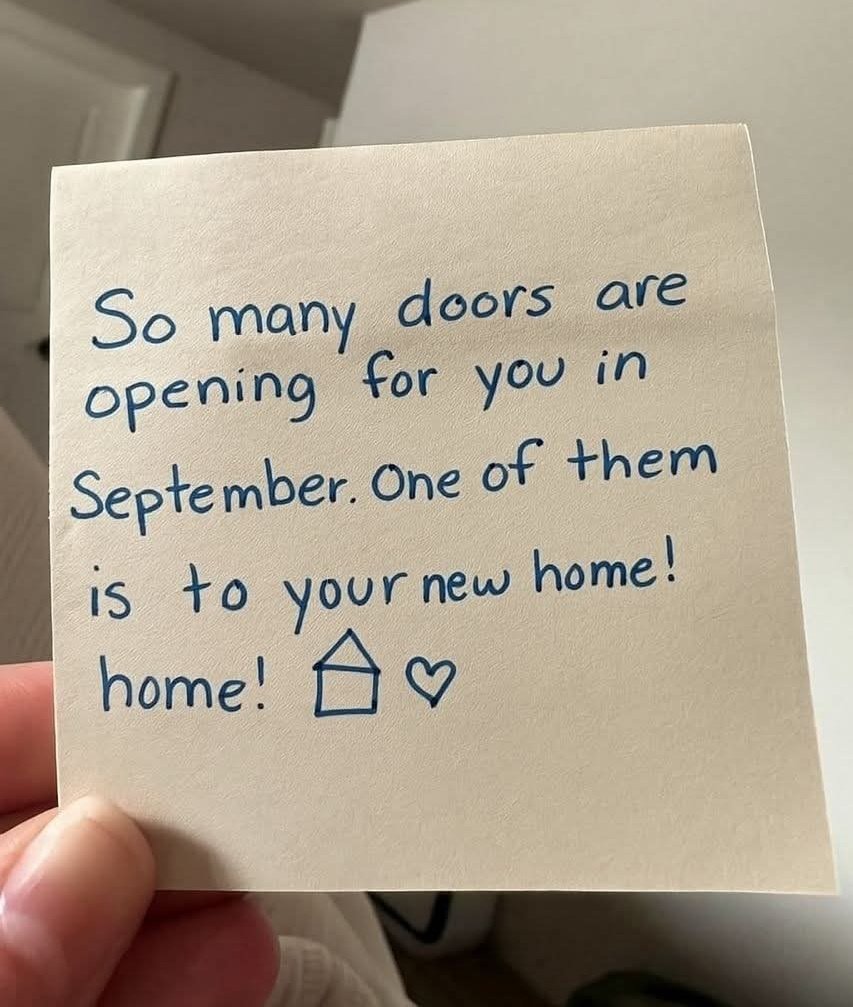 So many doors are
opening for you in
September. One of them
is to your new home!
home!